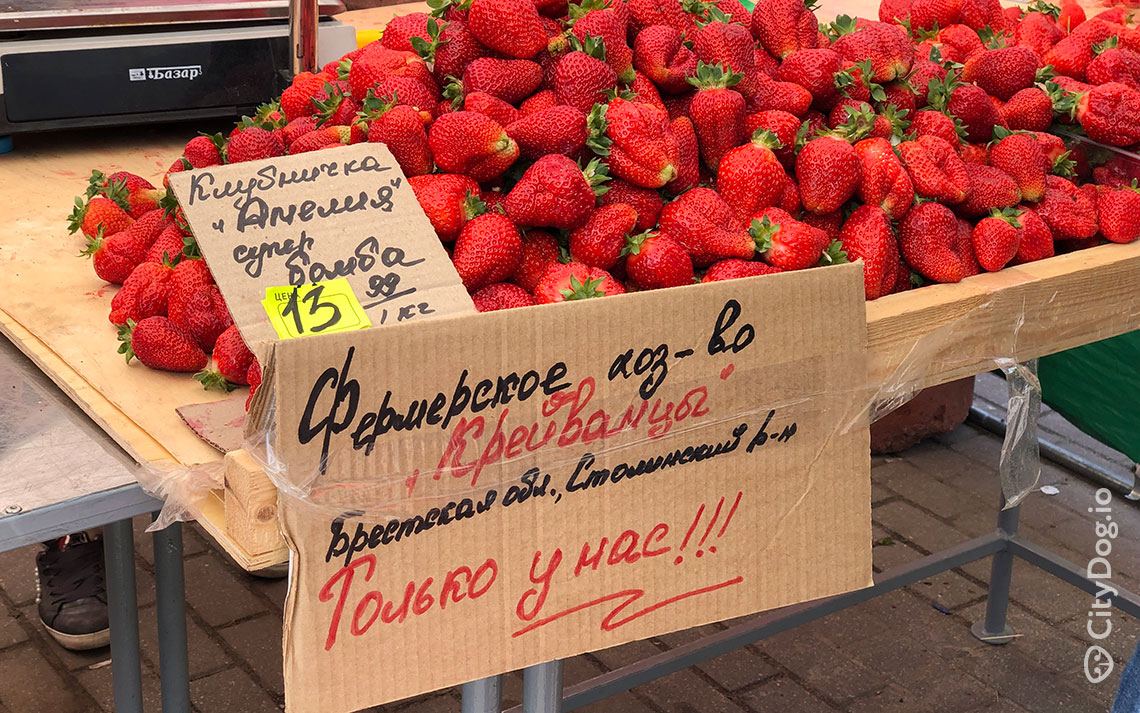 Базар
Клубничка
"Амелия"
супер
бомба
ЦЕН
13 99
1 кг
Фермерское хоз-во
"Крейванцы"
Брестская обл., Столинский р-н
Только у нас!!!
CityDog.io